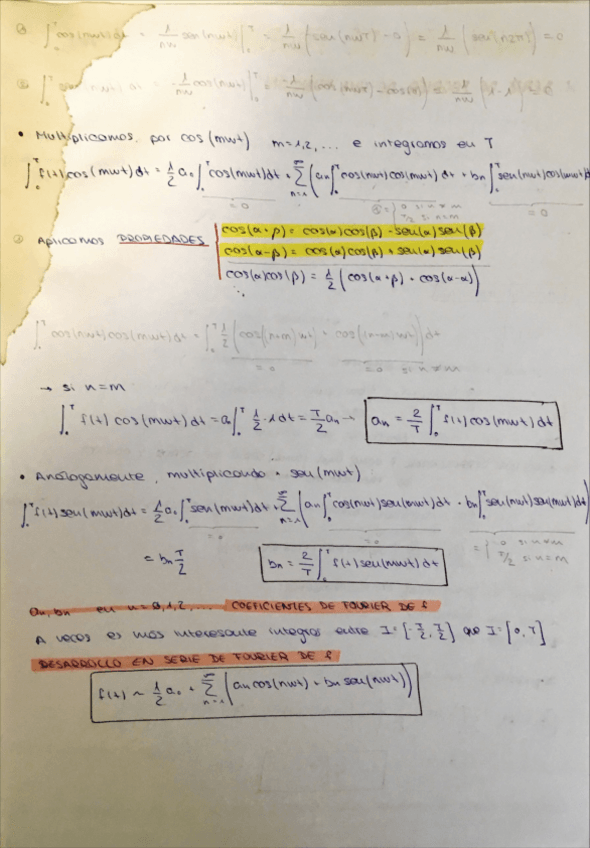 ① ∫₀ᵀ cos(nωt)dt = 1/nω sen(nωt)|₀ᵀ = 1/nω (sen(nωT) - 0) = 1/nω (sen(n2π)) = 0
② ∫₀ᵀ sen(nωt)dt = -1/nω cos(nωt)|₀ᵀ =
• Multiplicamos por cos(mωt) m=1,2,... e integramos en T
∫₀ᵀ f(t)cos(mωt)dt = 1/2 a₀ ∫₀ᵀ cos(mωt)dt + Σₙ₌₁^∞ (aₙ ∫₀ᵀ cos(nωt)cos(mωt)dt + bₙ ∫₀ᵀ sen(nωt)cos(mωt)dt
=0 ③ = { 0 si n≠m =0
T/2 si n=m
③ Aplicamos PROPIEDADES
cos(α+β) = cos(α)cos(β) - sen(α)sen(β)
cos(α-β) = cos(α)cos(β) + sen(α)sen(β)
cos(α)cos(β) = 1/2 (cos(α+β) + cos(α-α))
∫₀ᵀ cos(nωt)cos(mωt)dt = ∫₀ᵀ 1/2 (cos((n+m)ωt) + cos((n-m)ωt)) dt
=0 =0 si n≠m
→ si n=m
∫₀ᵀ f(t)cos(mωt)dt = aₙ ∫₀ᵀ 1/2 · 1 dt = T/2 aₙ → aₙ = 2/T ∫₀ᵀ f(t)cos(mωt)dt
• Análogamente, multiplicando · sen(mωt)
∫₀ᵀ f(t)sen(mωt)dt = 1/2 a₀ ∫₀ᵀ sen(mωt)dt + Σₙ₌₁^∞ (aₙ ∫₀ᵀ cos(nωt)sen(mωt)dt + bₙ ∫₀ᵀ sen(nωt)sen(mωt)dt)
=0 =0 = { 0 si n≠m
T/2 si n=m
= bₙ T/2 bₙ = 2/T ∫₀ᵀ f(t)sen(mωt)dt
aₙ, bₙ en n=0,1,2,... COEFICIENTES DE FOURIER DE f
A veces es más interesante integrar entre I=[-T/2, T/2] que I=[0,T]
DESARROLLO EN SERIE DE FOURIER DE f
f(t) ~ 1/2 a₀ + Σₙ₌₁^∞ (aₙ cos(nωt) + bₙ sen(nωt))